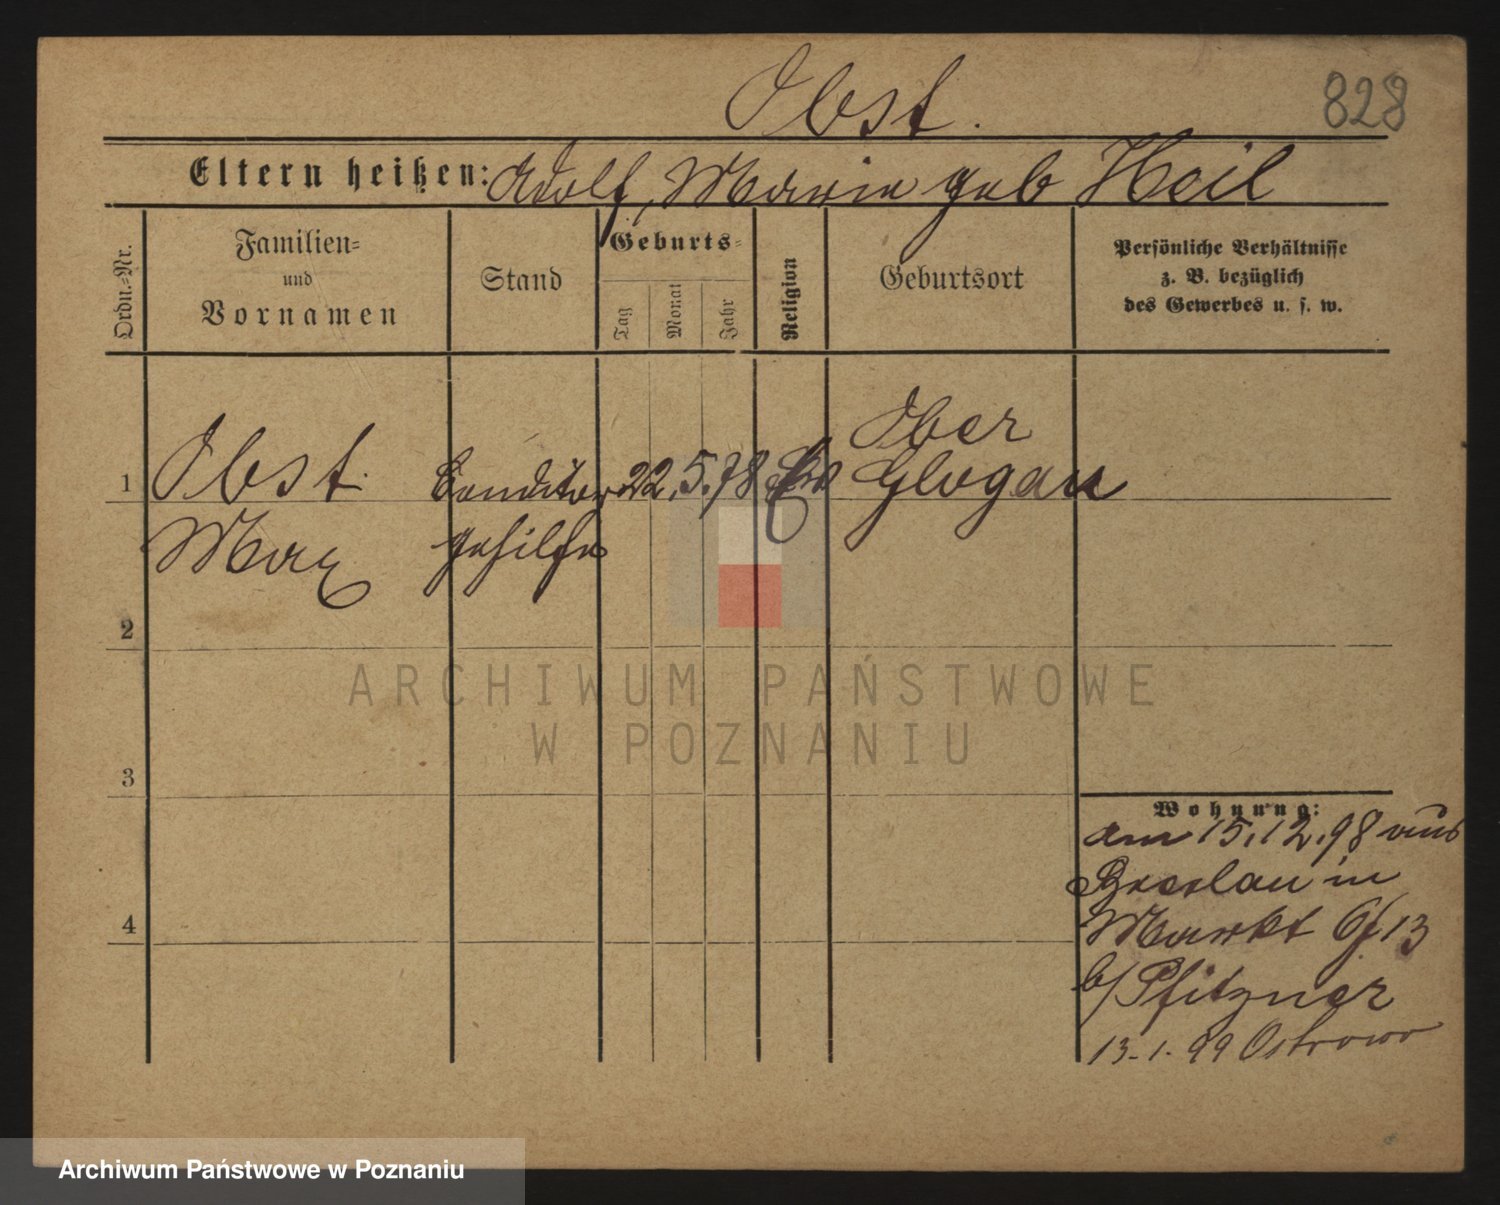 Obst.
828
Eltern heißen: Adolf, Maria geb Heil
Ordn.=Nr.
Familien=
und
Vornamen
Stand
Geburts=
Tag
Monat
Jahr
Religion
Geburtsort
Persönliche Verhältnisse
z. B. bezüglich
des Gewerbes u. s. w.
1
Obst
Max
Conditor
gehilfe
22. 5. 78
Ober
Glogau
2
3
4
ARCHIWUM PAŃSTWOWE
W POZNANIU
Wohnung:
am 15.12.98 aus
Breslau in
Markt 13
b/ Pfitzner
13-1.99 Ostrowo
Archiwum Państwowe w Poznaniu